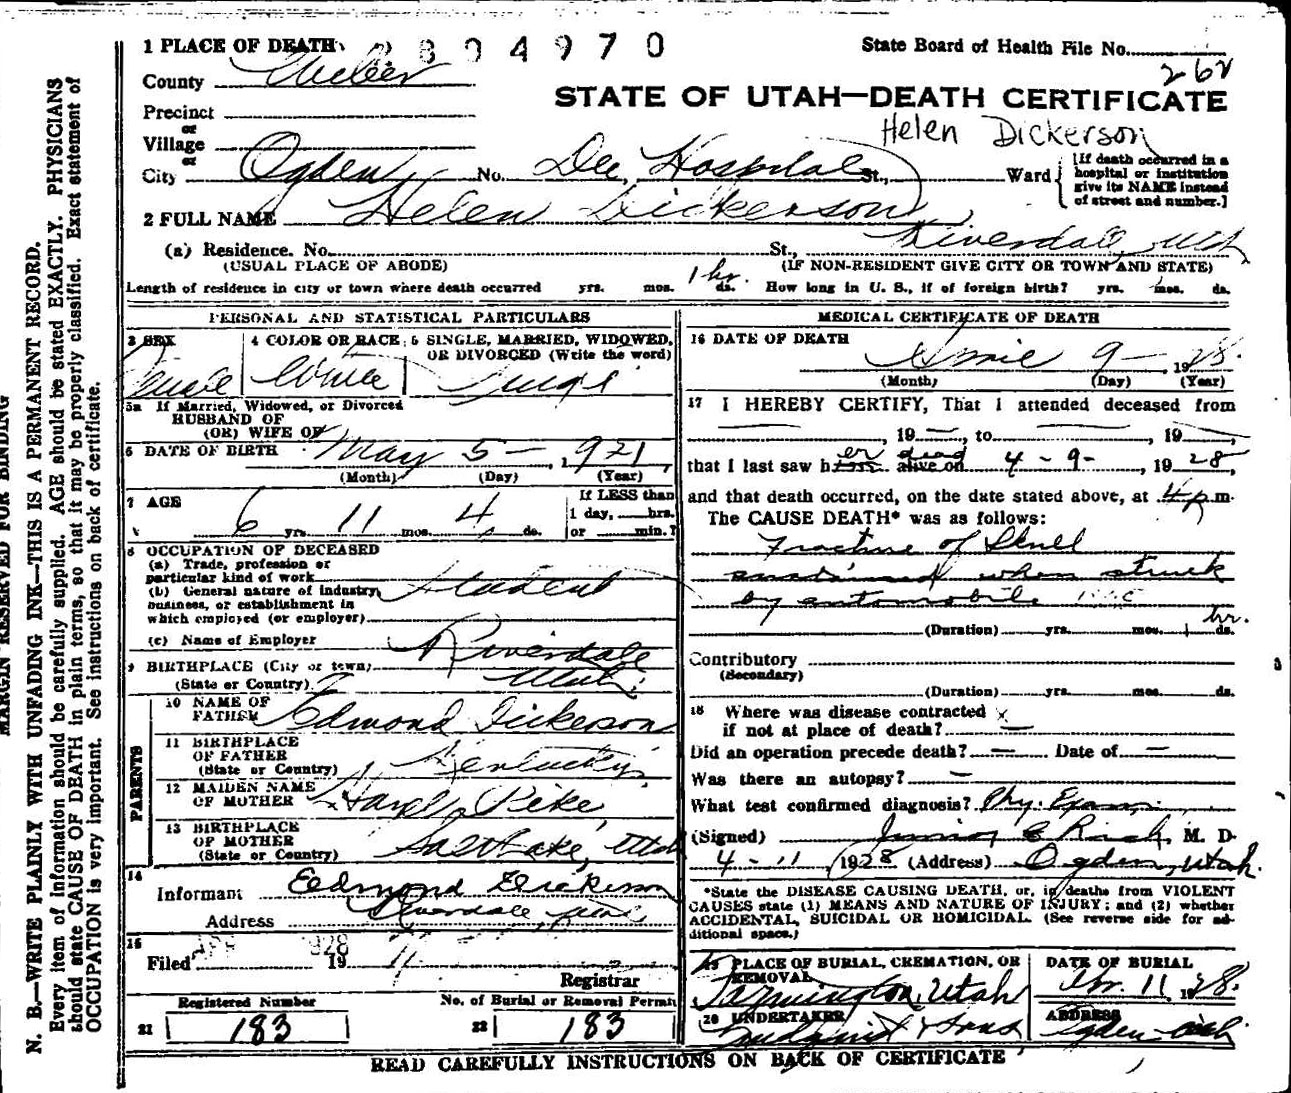 1 PLACE OF DEATH 2804970 State Board of Health File No.
262
County Weber
STATE OF UTAH—DEATH CERTIFICATE
Precinct
or
Helen Dickerson
Village
or
City Ogden No. Dee Hospital St., Ward [If death occurred in a hospital or institution give its NAME instead of street and number.]
2 FULL NAME Helen Dickerson
(a) Residence. No. St., Riverdale, Utah
(USUAL PLACE OF ABODE) (IF NON-RESIDENT GIVE CITY OR TOWN AND STATE)
Length of residence in city or town where death occurred yrs. mos. 1 hr. ds. How long in U. S., if of foreign birth? yrs. mos. ds.
PERSONAL AND STATISTICAL PARTICULARS
3 SEX
4 COLOR OR RACE
5 SINGLE, MARRIED, WIDOWED, OR DIVORCED (Write the word)
Female White
5a If Married, Widowed, or Divorced
HUSBAND OF
(OR) WIFE OF
6 DATE OF BIRTH May 5 — , 1921
(Month) (Day) (Year)
7 AGE
6 yrs. 11 mos. 4 ds.
If LESS than
1 day, hrs.
or min.?
8 OCCUPATION OF DECEASED
(a) Trade, profession or
particular kind of work
Student
(b) General nature of industry,
business, or establishment in
which employed (or employer)
(c) Name of Employer
9 BIRTHPLACE (City or town) Riverdale
(State or Country) Utah
PARENTS
10 NAME OF
FATHER Edmond Dickerson
11 BIRTHPLACE
OF FATHER
(State or Country) Kentucky
12 MAIDEN NAME
OF MOTHER Pike
13 BIRTHPLACE
OF MOTHER
(State or Country) Salt Lake, Utah
14
Informant Edmond Dickerson
Address Riverdale
15
Filed APR 1928 19
Registrar
Registered Number No. of Burial or Removal Permit
21 183 22 183
MEDICAL CERTIFICATE OF DEATH
16 DATE OF DEATH
9 — , 1928.
(Month) (Day) (Year)
17 I HEREBY CERTIFY, That I attended deceased from
— , 19 — , to — , 19 — ,
that I last saw her dead alive on 4 - 9 - , 1928,
and that death occurred, on the date stated above, at 4 p.m.
The CAUSE DEATH* was as follows:
Fracture of Skull
sustained when struck
by automobile
(Duration) yrs. mos. 1 hr. ds.
Contributory
(Secondary)
(Duration) yrs. mos. ds.
18 Where was disease contracted
if not at place of death? —
Did an operation precede death? — Date of —
Was there an autopsy? —
What test confirmed diagnosis? Phy. Exam.
(Signed) Junior E Rich, M. D.
4 - 11 1928 (Address) Ogden, Utah.
*State the DISEASE CAUSING DEATH, or, in deaths from VIOLENT
CAUSES state (1) MEANS AND NATURE OF INJURY; and (2) whether
ACCIDENTAL, SUICIDAL OR HOMICIDAL. (See reverse side for ad-
ditional space.)
19 PLACE OF BURIAL, CREMATION, OR
REMOVAL
Farmington, Utah
DATE OF BURIAL
Apr. 11 1928.
20 UNDERTAKER
& Sons
ADDRESS
Ogden Utah
READ CAREFULLY INSTRUCTIONS ON BACK OF CERTIFICATE
MARGIN RESERVED FOR BINDING
N. B.—WRITE PLAINLY WITH UNFADING INK—THIS IS A PERMANENT RECORD.
Every item of information should be carefully supplied. AGE should be stated EXACTLY. PHYSICIANS
should state CAUSE OF DEATH in plain terms, so that it may be properly classified. Exact statement of
OCCUPATION is very important. See instructions on back of certificate.